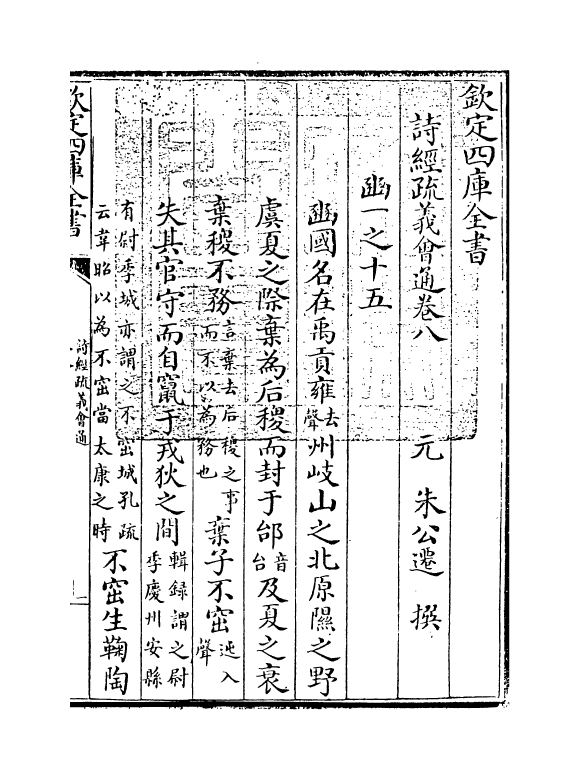 欽定四庫全書
詩經疏義會通卷八
元 朱公遷 撰
豳一之十五
豳國名在禹貢雍去聲州岐山之北原隰之野
虞夏之際棄為后稷而封于邰音台及夏之衰
棄稷不務言棄去后稷之事而不以為務也棄子不窋竹律反聲
失其官守而自竄于戎狄之間輯録謂之尉李慶州安縣
有尉李城亦謂之不窋城孔疏云韋昭以為不窋當太康之時不窋生鞠陶
欽定四庫全書
詩經疏義會通
一